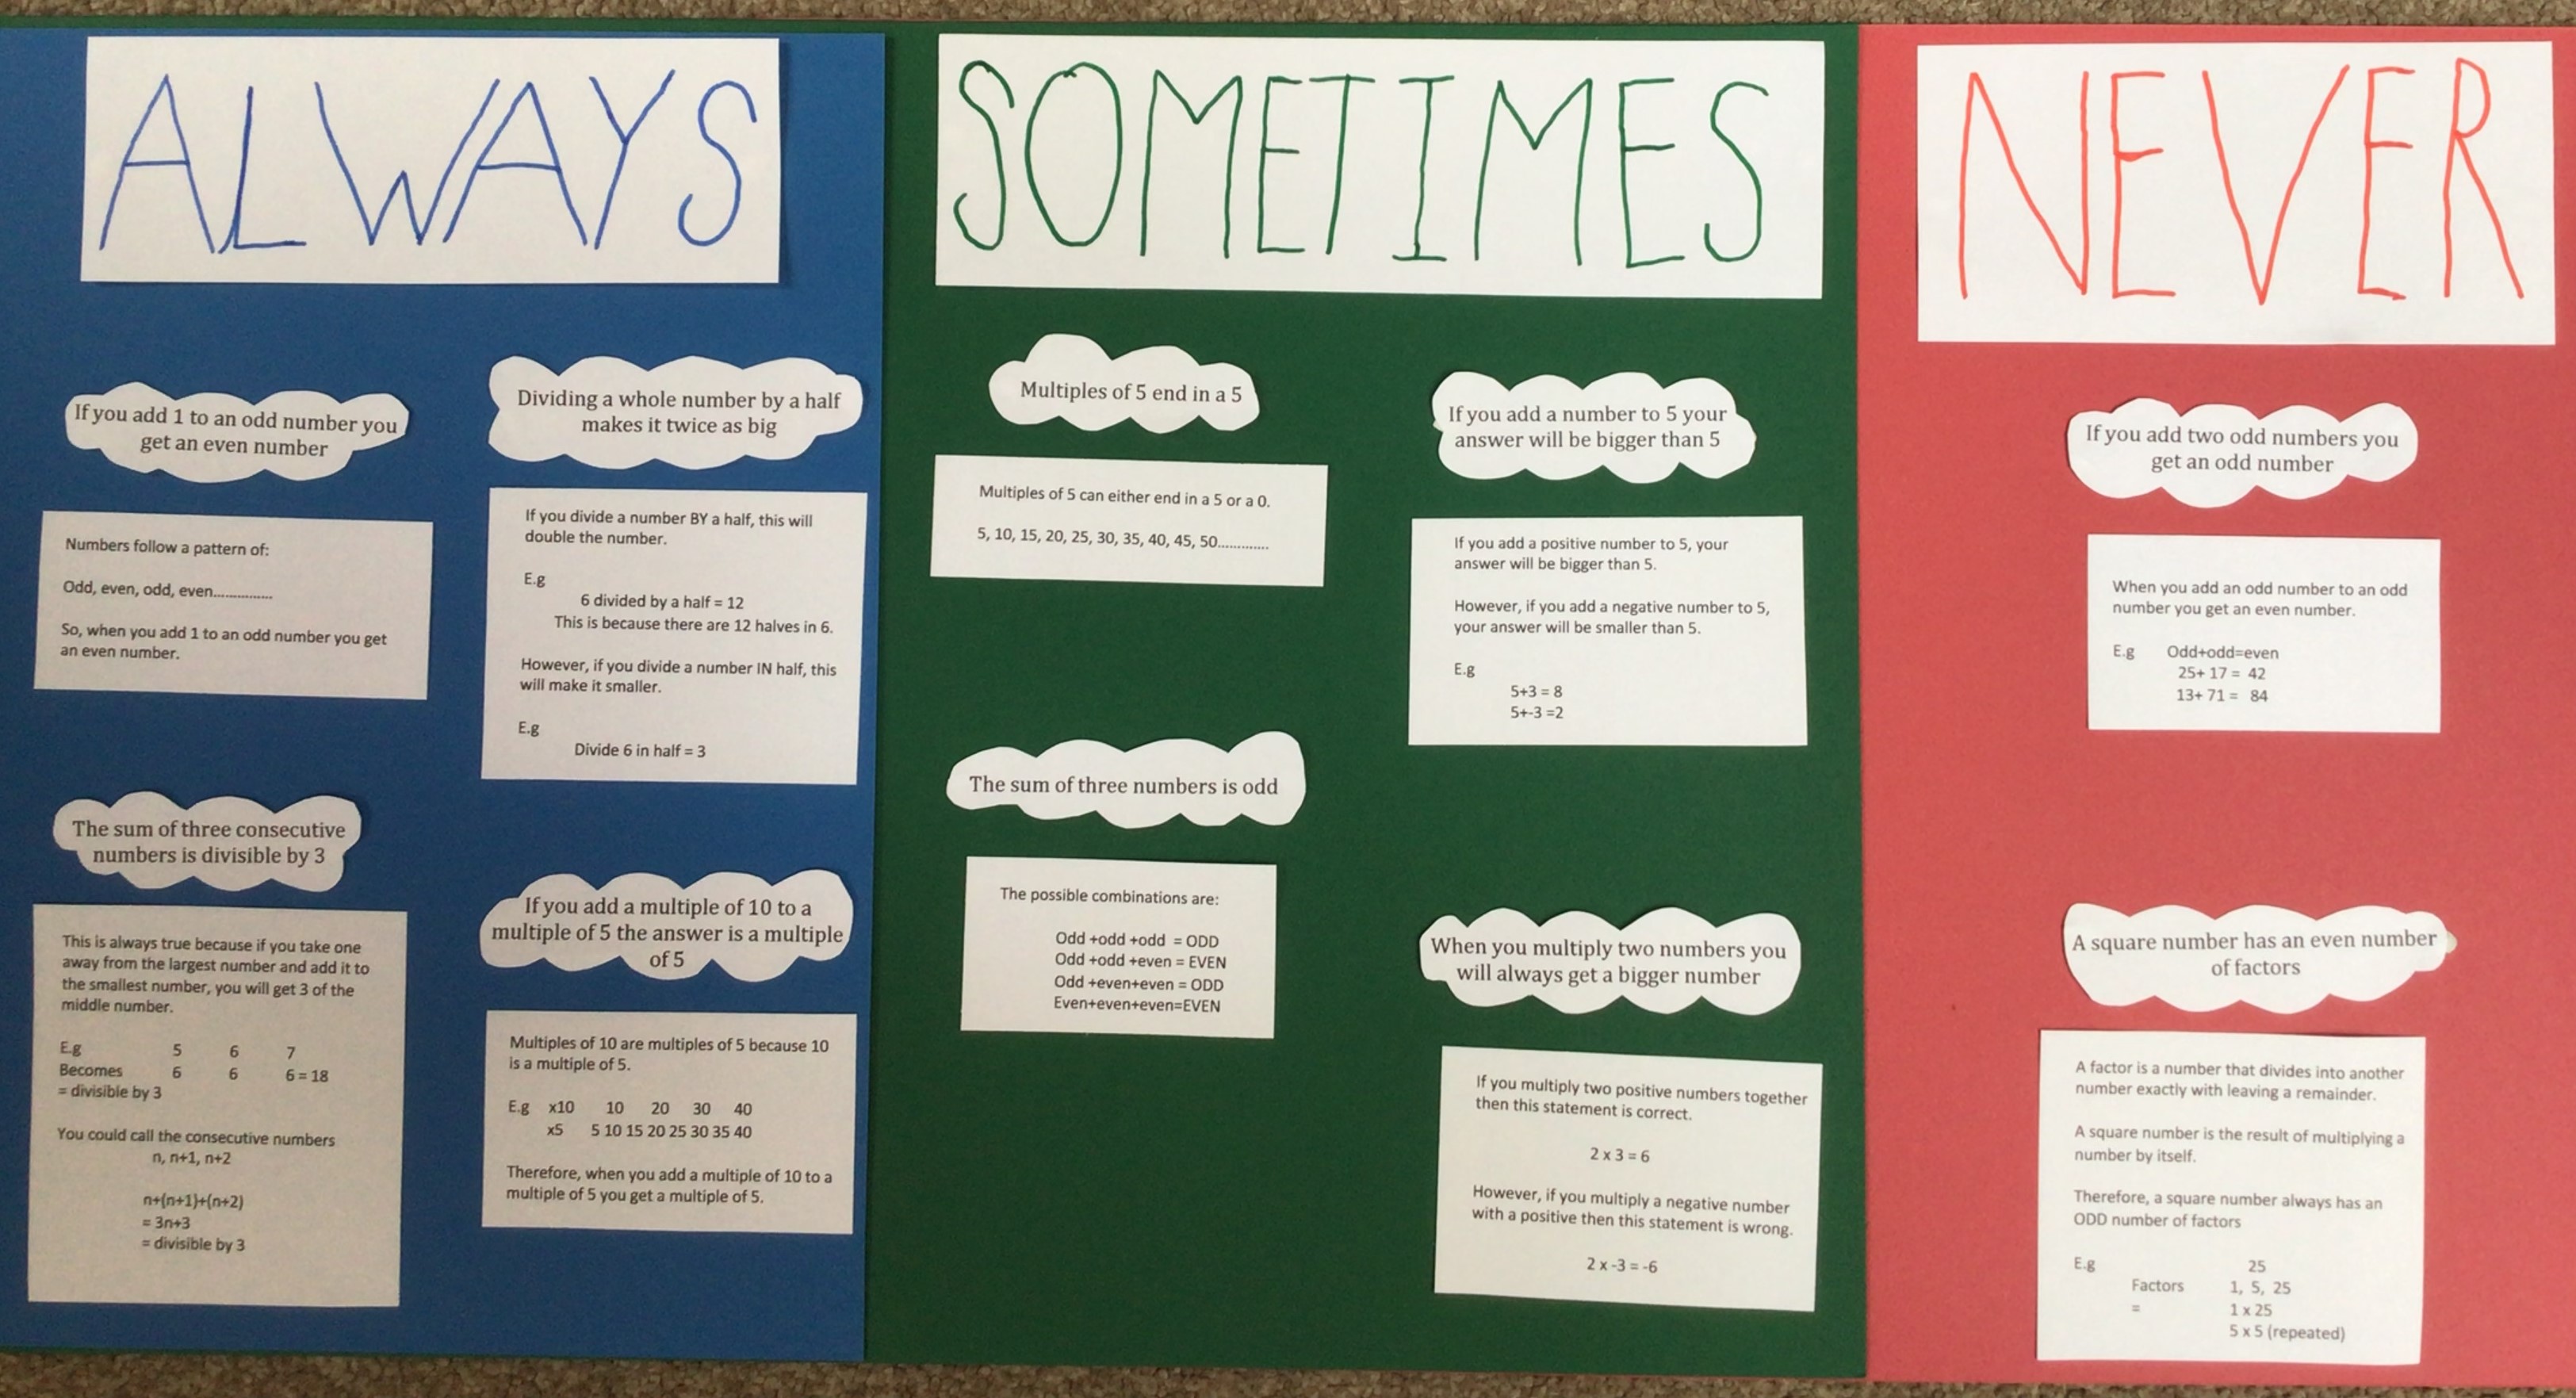 ALWAYS
If you add 1 to an odd number you
get an even number
Numbers follow a pattern of:
Odd, even, odd, even...............
So, when you add 1 to an odd number you get
an even number.
The sum of three consecutive
numbers is divisible by 3
This is always true because if you take one
away from the largest number and add it to
the smallest number, you will get 3 of the
middle number.
E.g 5 6 7
Becomes 6 6 6 = 18
= divisible by 3
You could call the consecutive numbers
n, n+1, n+2
n+(n+1)+(n+2)
= 3n+3
= divisible by 3
Dividing a whole number by a half
makes it twice as big
If you divide a number BY a half, this will
double the number.
E.g
6 divided by a half = 12
This is because there are 12 halves in 6.
However, if you divide a number IN half, this
will make it smaller.
E.g
Divide 6 in half = 3
If you add a multiple of 10 to a
multiple of 5 the answer is a multiple
of 5
Multiples of 10 are multiples of 5 because 10
is a multiple of 5.
E.g x10 10 20 30 40
x5 5 10 15 20 25 30 35 40
Therefore, when you add a multiple of 10 to a
multiple of 5 you get a multiple of 5.
SOMETIMES
Multiples of 5 end in a 5
Multiples of 5 can either end in a 5 or a 0.
5, 10, 15, 20, 25, 30, 35, 40, 45, 50.............
The sum of three numbers is odd
The possible combinations are:
Odd +odd +odd = ODD
Odd +odd +even = EVEN
Odd +even+even = ODD
Even+even+even=EVEN
If you add a number to 5 your
answer will be bigger than 5
If you add a positive number to 5, your
answer will be bigger than 5.
However, if you add a negative number to 5,
your answer will be smaller than 5.
E.g
5+3 = 8
5+-3 =2
When you multiply two numbers you
will always get a bigger number
If you multiply two positive numbers together
then this statement is correct.
2 x 3 = 6
However, if you multiply a negative number
with a positive then this statement is wrong.
2 x -3 = -6
NEVER
If you add two odd numbers you
get an odd number
When you add an odd number to an odd
number you get an even number.
E.g Odd+odd=even
25+ 17 = 42
13+ 71 = 84
A square number has an even number
of factors
A factor is a number that divides into another
number exactly with leaving a remainder.
A square number is the result of multiplying a
number by itself.
Therefore, a square number always has an
ODD number of factors
E.g 25
Factors 1, 5, 25
= 1 x 25
5 x 5 (repeated)